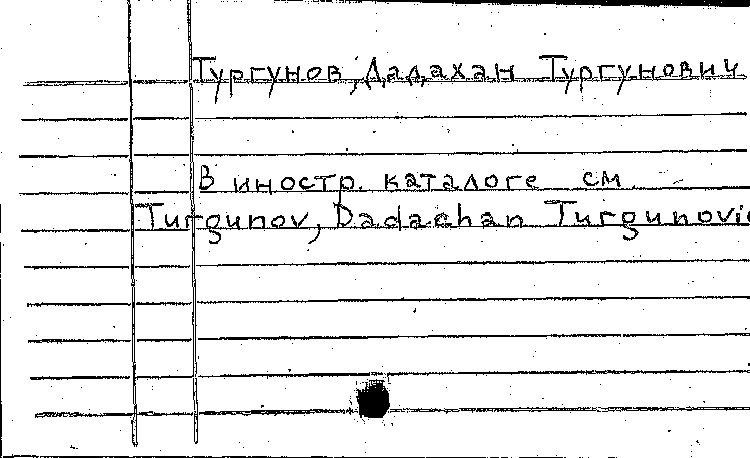 Тургунов, Дадахан Тургунович
В иностр. каталоге см.
Turgunov, Dadachan Turgunovic